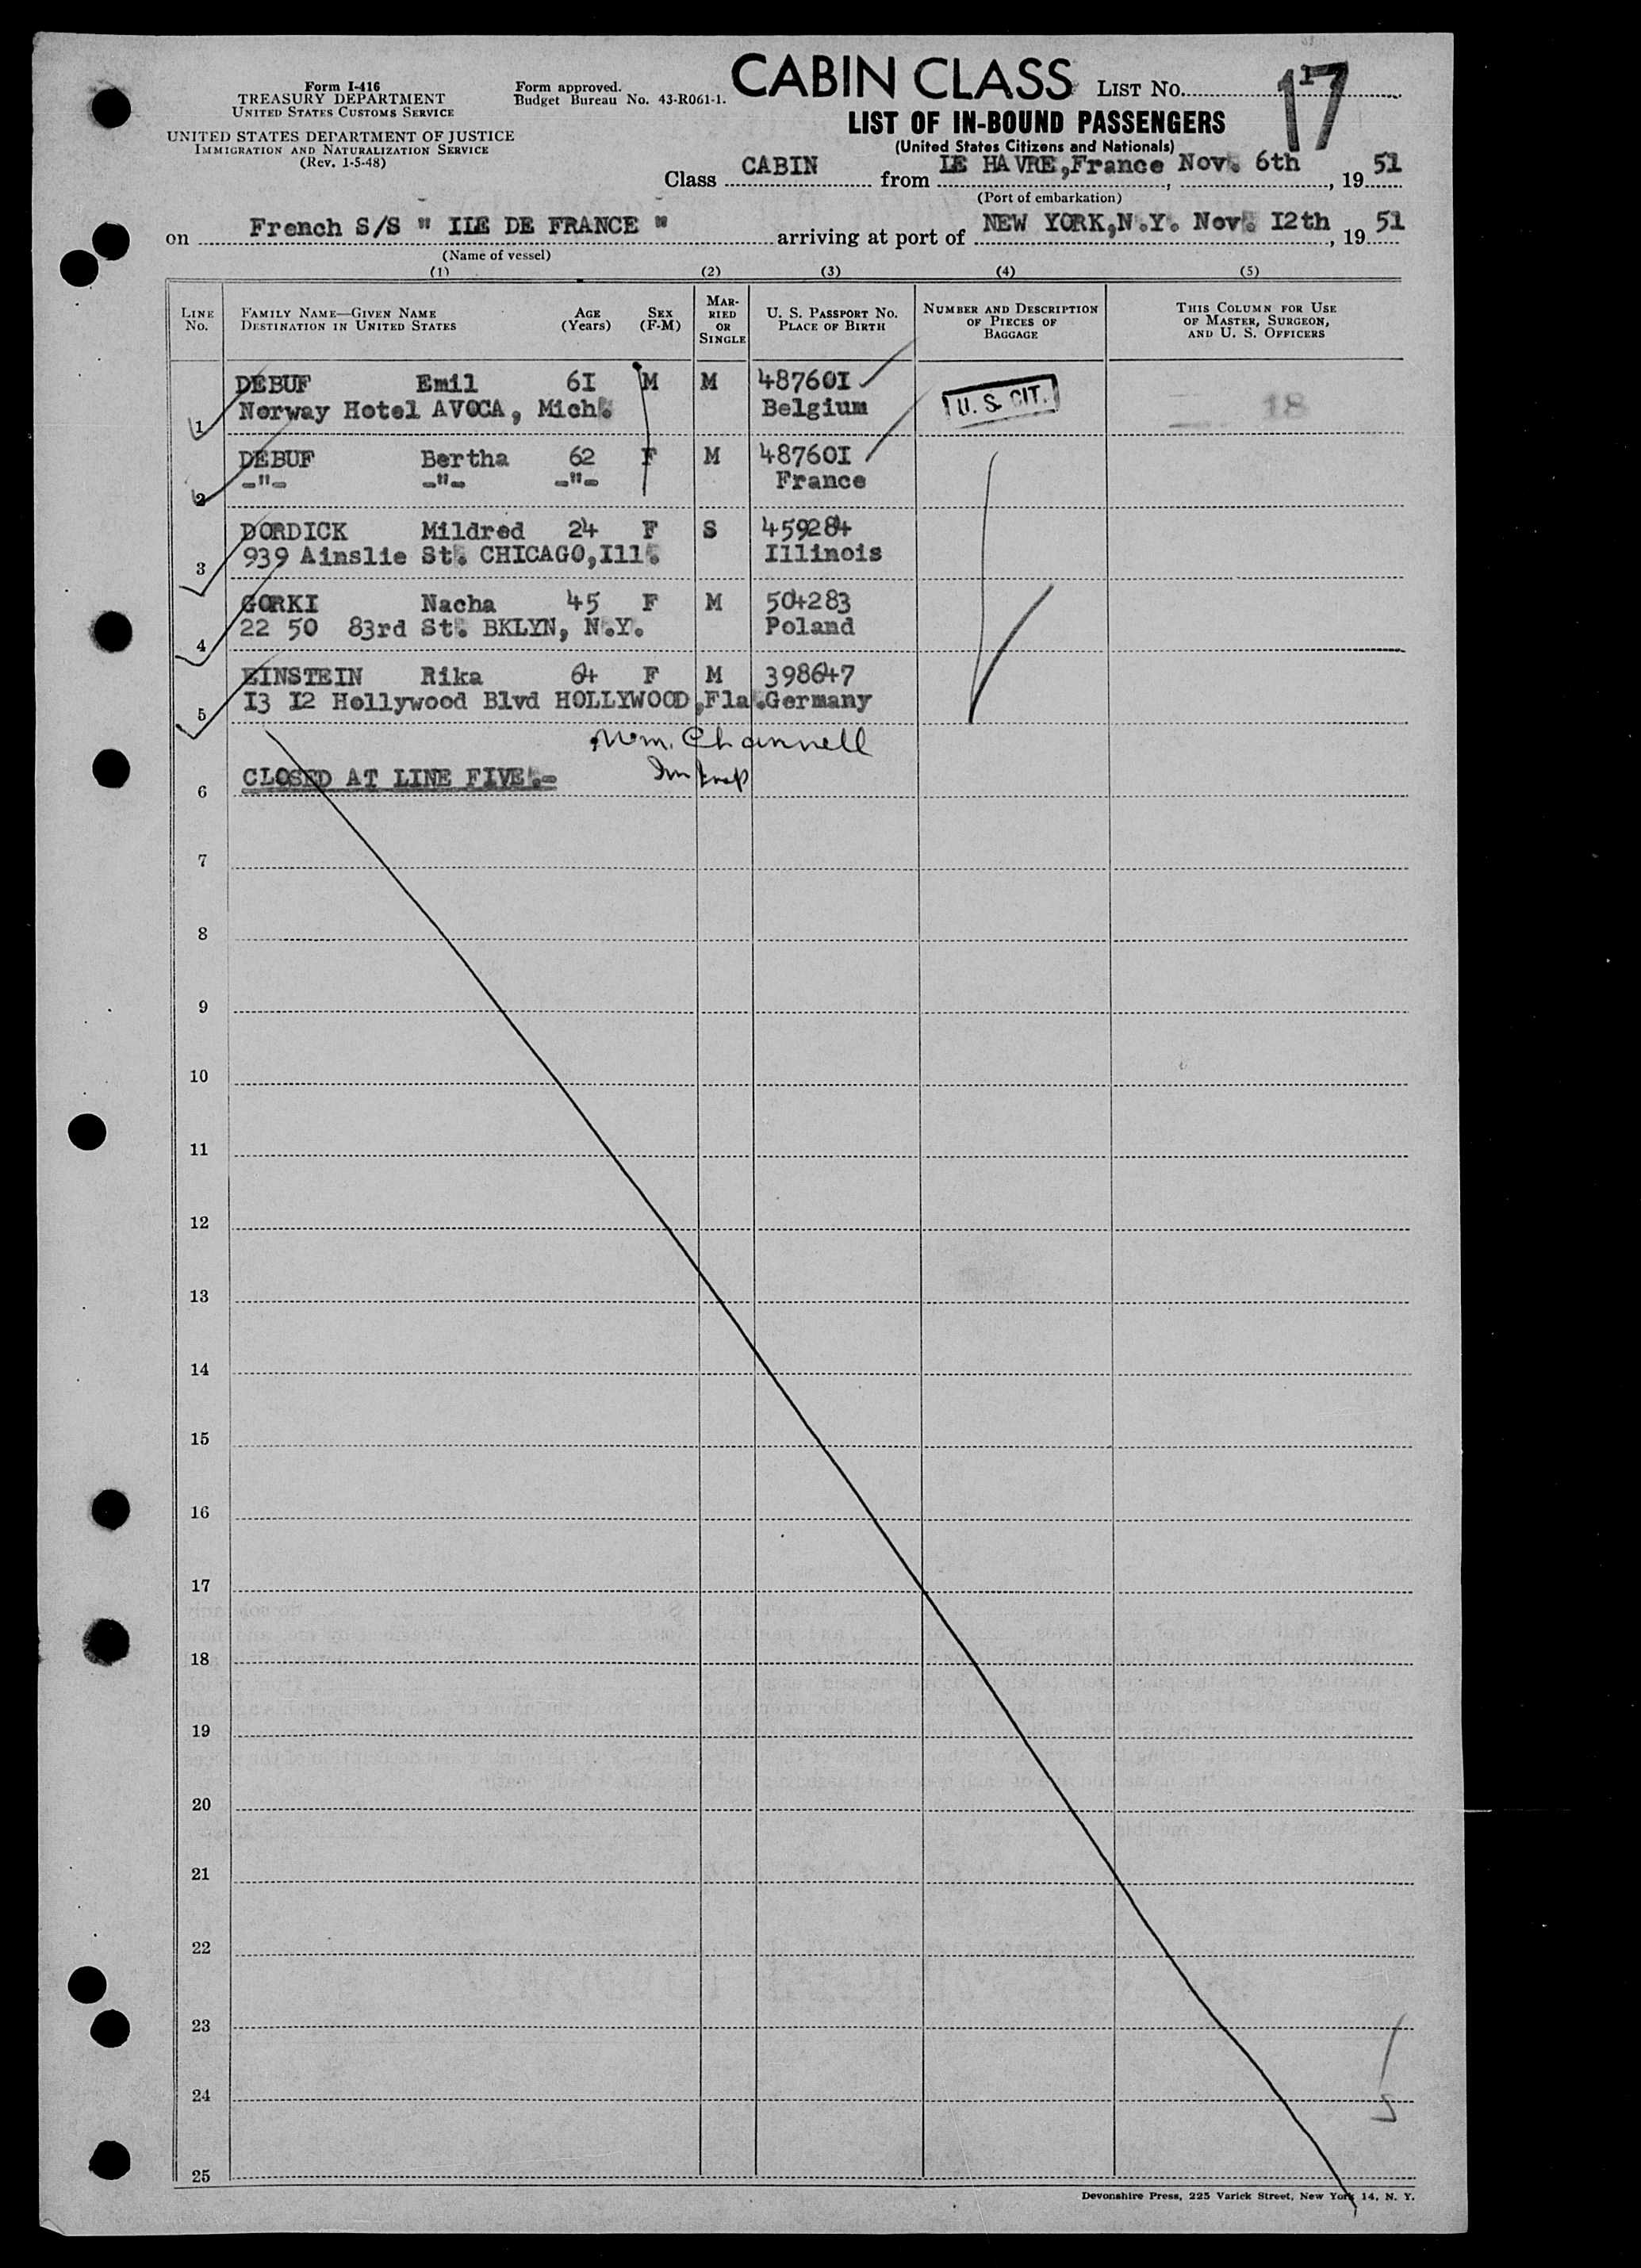 Form I-416
TREASURY DEPARTMENT
UNITED STATES CUSTOMS SERVICE
UNITED STATES DEPARTMENT OF JUSTICE
IMMIGRATION AND NATURALIZATION SERVICE
(Rev. 1-5-48)
Form approved.
Budget Bureau No. 43-R061-1.
CABIN CLASS LIST No. 17
LIST OF IN-BOUND PASSENGERS
(United States Citizens and Nationals)
Class CABIN from LE HAVRE,France Nov. 6th, 19 51
(Port of embarkation)
on French S/S " ILE DE FRANCE " arriving at port of NEW YORK,N.Y. Nov. I2th, 19 51
(Name of vessel)
(1) (2) (3) (4) (5)
LINE No. FAMILY NAME—GIVEN NAME DESTINATION IN UNITED STATES AGE (Years) SEX (F-M) MARRIED OR SINGLE U. S. PASSPORT No. PLACE OF BIRTH NUMBER AND DESCRIPTION OF PIECES OF BAGGAGE THIS COLUMN FOR USE OF MASTER, SURGEON, AND U. S. OFFICERS
DEBUF Emil 6I M M 48760I
1 Norway Hotel AVOCA, Mich. Belgium U. S. CIT. 18
DEBUF Bertha 62 F M 48760I
2 -"- -"- -"- France
DORDICK Mildred 24 F S 459284
3 939 Ainslie St. CHICAGO,Ill. Illinois
GORKI Nacha 45 F M 504283
4 22 50 83rd St. BKLYN, N.Y. Poland
EINSTEIN Rika 64 F M 398647
5 I3 I2 Hollywood Blvd HOLLYWOOD,Fla.Germany
Wm. Channell
6 CLOSED AT LINE FIVE.-
7
8
9
10
11
12
13
14
15
16
17
18
19
20
21
22
23
24
25
5
Devonshire Press, 225 Varick Street, New York 14, N. Y.